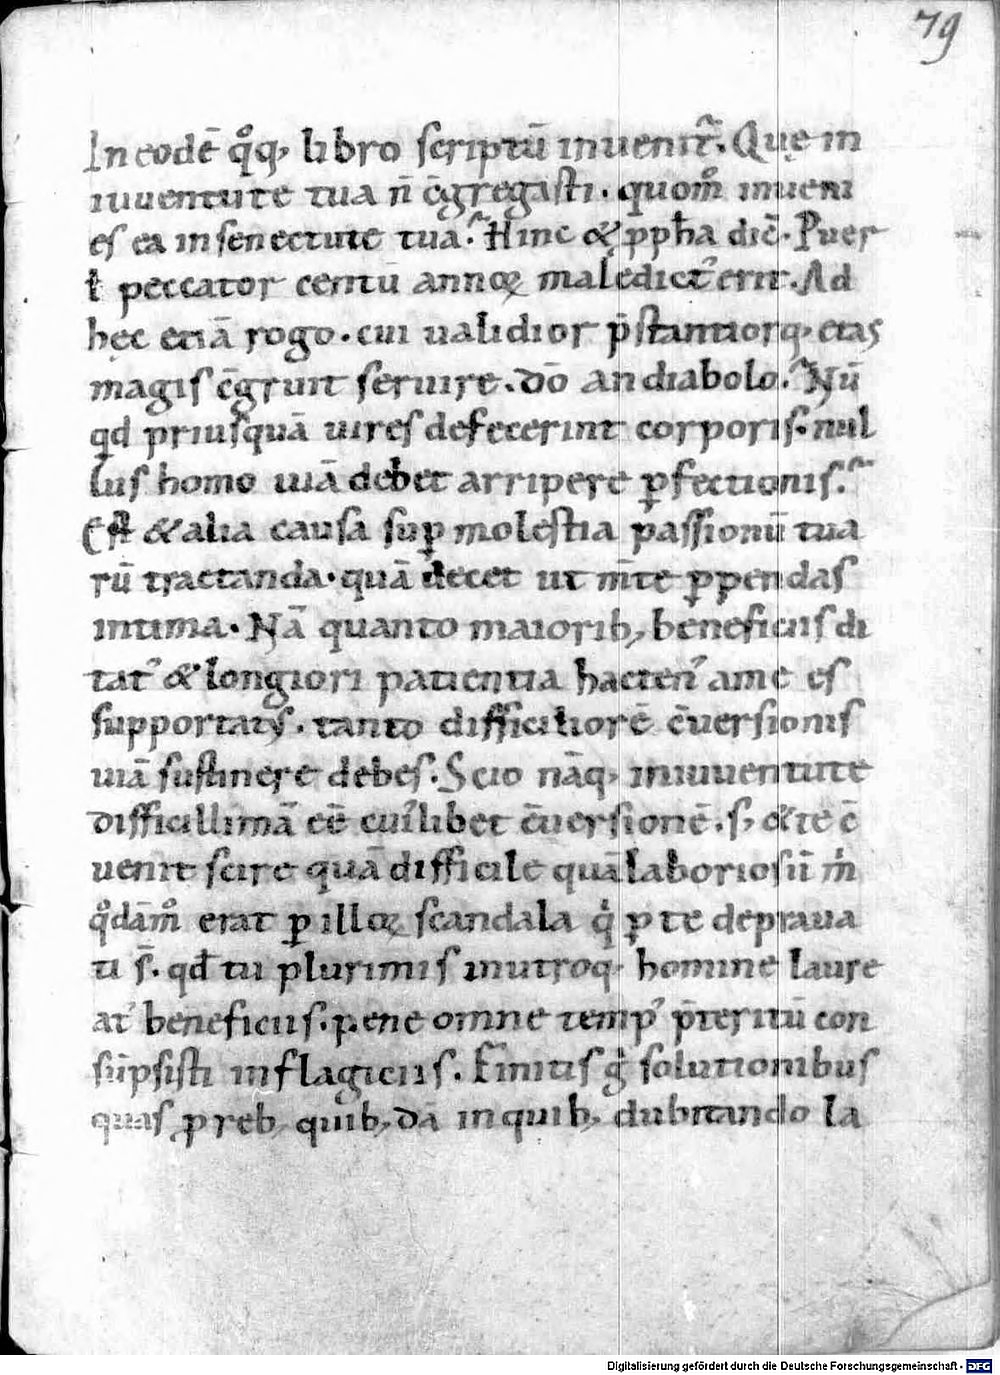 79
In eodē qͦq; libro scriptū inuenit᷑. Quę in
iuuentute tua n̄ c̄gregasti. quomͦ inueni
es ea in senectute tua. Hinc & ꝓph̄a dic̄. Puer
ł peccator centū annoꝝ maledict᷒ erit. Ad
hęc etiā rogo. cui ualidior p̄stantiorq; etas
magis c̄gruit seruire. dō an diabolo. Nū
qd priusquā uires defecerint corporis. nul
lus homo uiā debet arripere ꝑfectionis.
Est & alia causa suꝑ molestia passionū tua
rū tractanda. quā decet ut m̄te ꝑpendas
intima. Nā quanto maiorib; beneficiis di
tat᷒ & longiori patientia hacten᷒ a me es
supportatus. tanto difficiliorē c̄uersionis
uiā sustinere debes. Scio nāq; in iuuentute
difficillimā eē cuilibet c̄uersionē. s; & te c̄
uenit scire quā difficile quā laboriosū m
qͦdāmͦ erat ꝑ illoꝝ scandala qͥ ꝑ te depraua
ti s̄. qđ tu plurimis in utroq; homine laure
at᷒ beneficiis. pene omne temp᷒ p̄teritū con
sūpsisti in flagiciis. Finitis gͦ solutionibus
quas ꝓ reb; quib;dā in quib; dubitando la
Digitalisierung gefördert durch die Deutsche Forschungsgemeinschaft - DFG